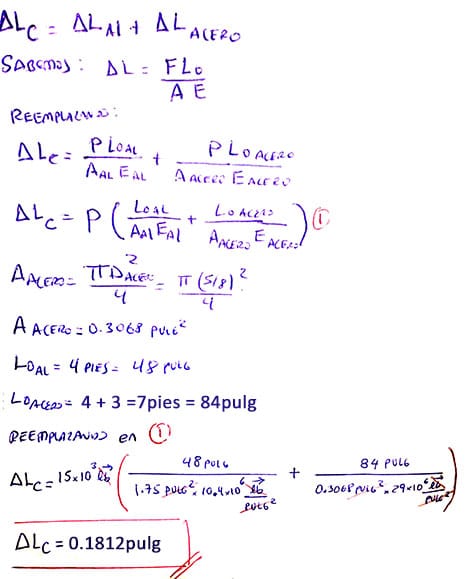 ΔLc = ΔLAl + ΔLACERO
SABEMOS: ΔL = FLo / A E
REEMPLAZANDO:
ΔLc = P LOAL / AAL EAL + P LO ACERO / AACERO EACERO
ΔLc = P (LOAL / AAl EAl + LO ACERO / AACERO EACERO) ①
AACERO = πD²ACERO / 4 = π(5/8)² / 4
A ACERO = 0.3068 PULG²
LOAL = 4 PIES = 48 PULG
LOACERO = 4 + 3 =7pies = 84pulg
REEMPLAZANDO en ①
ΔLc = 15x10³ lb (48 PULG / 1.75 PULG² x 10.4x10⁶ lb/PULG² + 84 PULG / 0.3068 PULG² x 29x10⁶ lb/PULG²)
ΔLc = 0.1812pulg